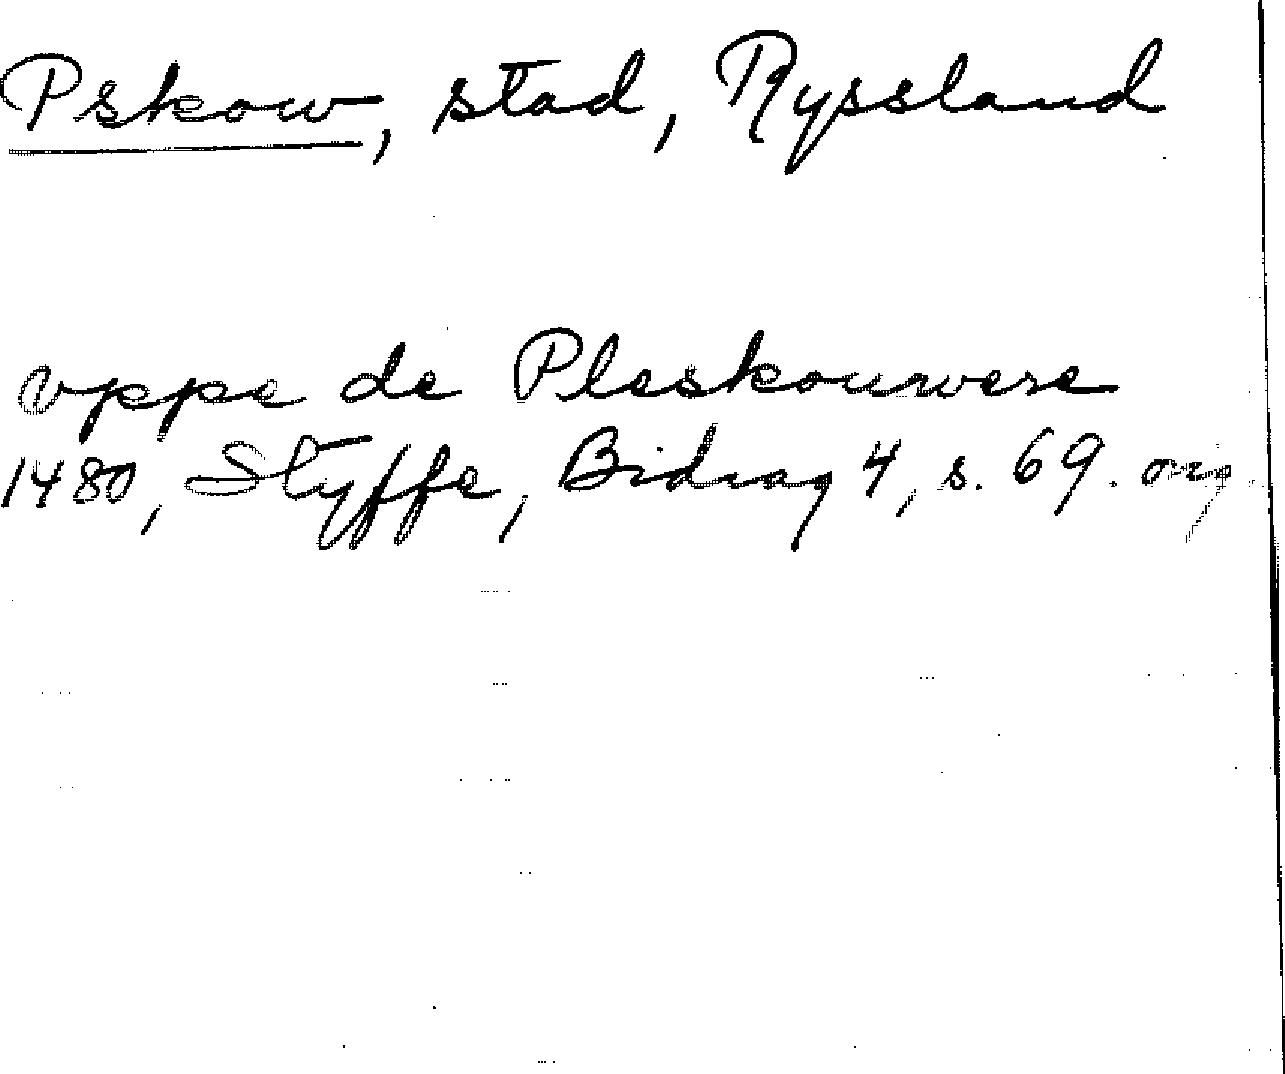 Pskow, stad, Ryssland
vppe de Pleskouwere
1480, Styffe, Bidrag 4, s. 69. orig.